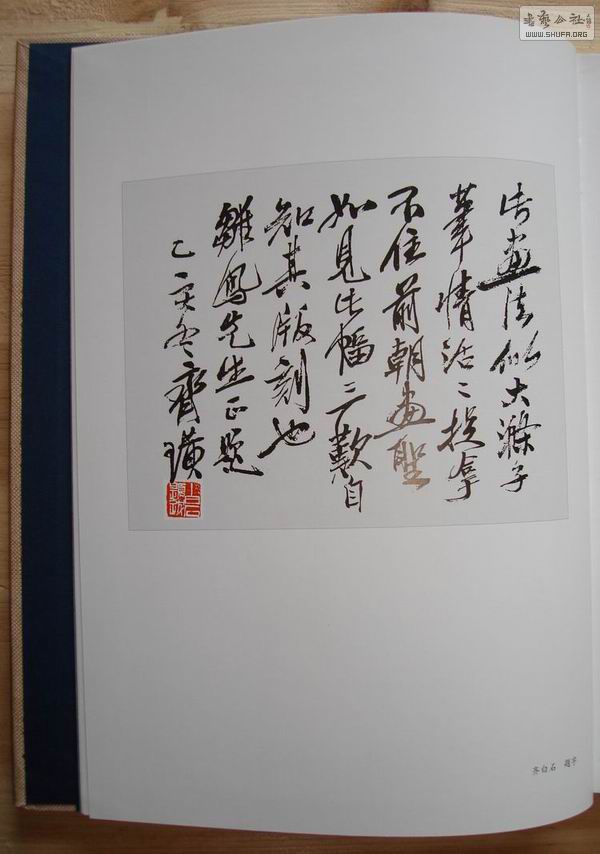 书艺公社
WWW.SHUFA.ORG
此畫法似大滌子
筆情活〻捉拿
不住前朝畫聖
如見此幅歎自
知其版刻也
雛鳳先生正題
乙亥冬齊璜
齐白石 题字